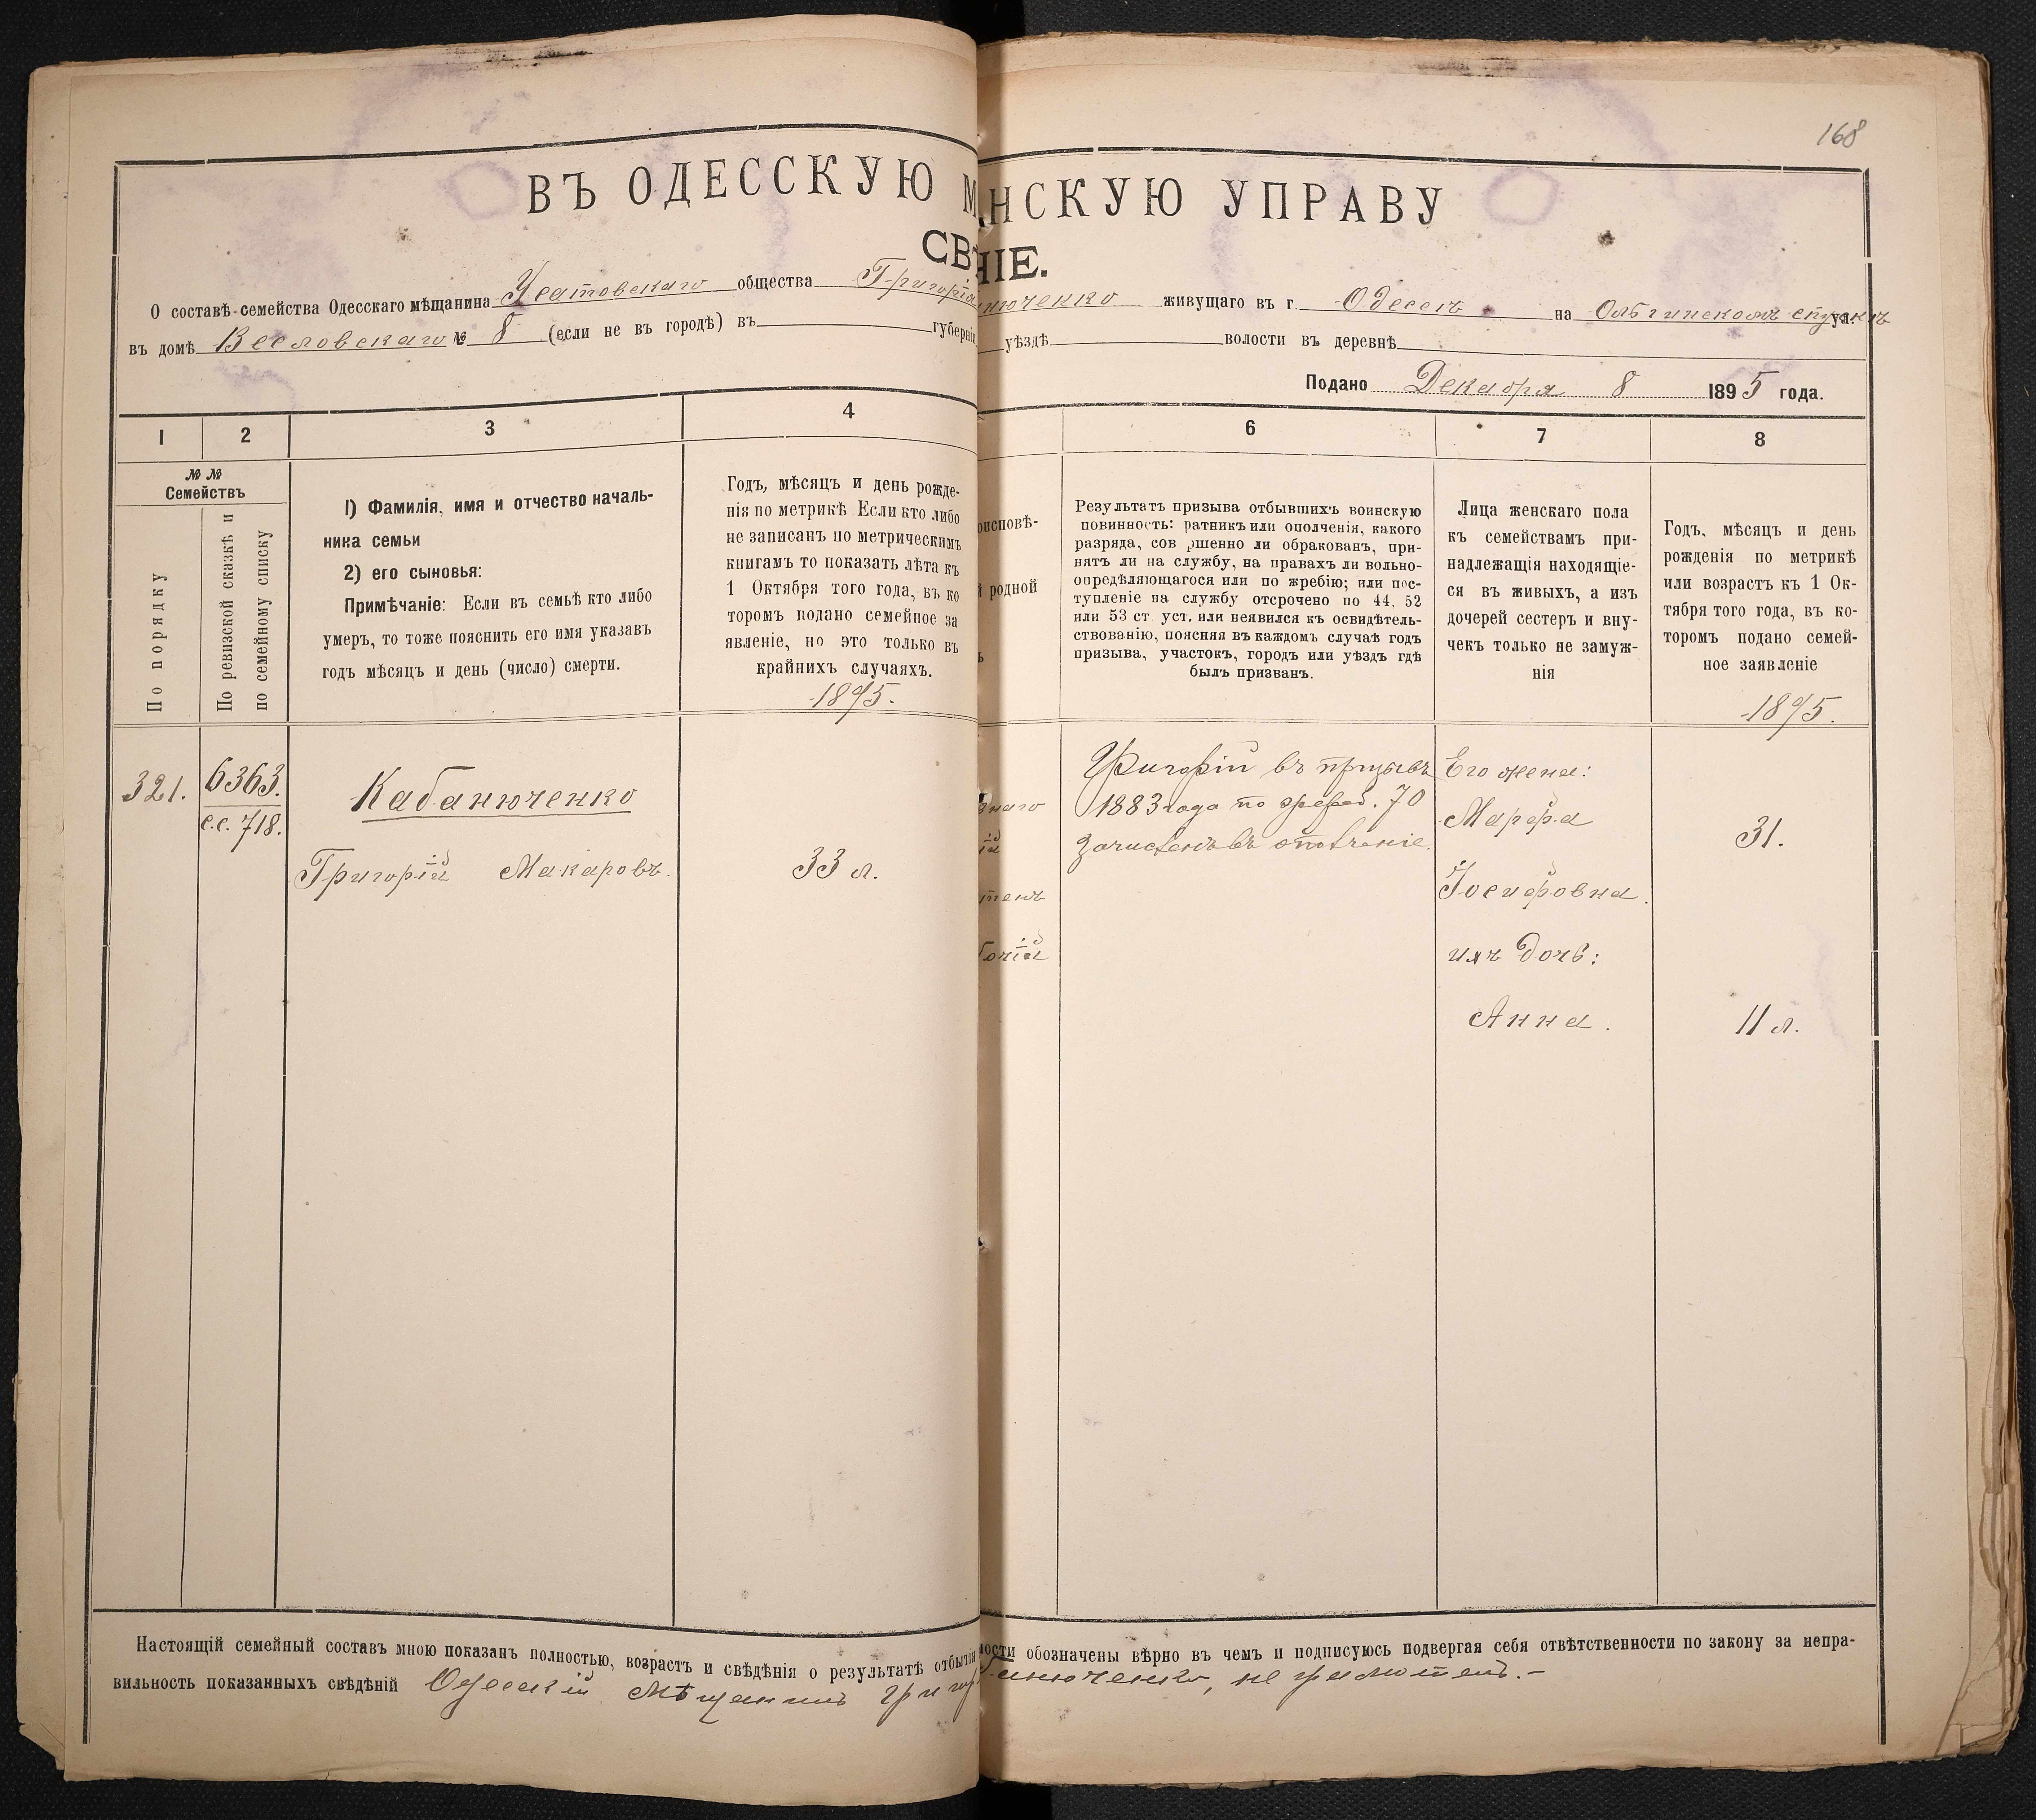 168
ВЪ ОДЕССКУЮ М НСКУЮ УПРАВУ
СВѢ НІЕ.
О составѣ семейства Одесскаго мѣщанина Усатовскаго общества Григорія нюченко живущаго въ г. Одессѣ на Ольгинскомъ спускѣ ул.
въ домѣ Весловскаго № 8 (если не въ городѣ) въ губерніи уѣздѣ волости въ деревнѣ
Подано Декабря 8 1895 года.
1 2 3 4 6 7 8
№ №
Семействъ
По порядку
По ревизской сказкѣ и
по семейному списку
1) Фамилія, имя и отчество началь-
ника семьи
2) его сыновья:
Примѣчаніе: Если въ семьѣ кто либо
умеръ, то тоже пояснить его имя указавъ
годъ мѣсяцъ и день (число) смерти.
Годъ, мѣсяцъ и день рожде-
нія по метрикѣ Если кто либо
не записанъ по метрическимъ
книгамъ то показать лѣта къ
1 Октября того года, въ ко
торомъ подано семейное за
явленіе, но это только въ
крайнихъ случаяхъ.
1895.
оисповѣ-
й родной
ь
Результатъ призыва отбывшихъ воинскую
повинность: ратникъ или ополченія, какого
разряда, сов ршенно ли обракованъ, при-
нятъ ли на службу, на правахъ ли вольно-
опредѣляющагося или по жребію; или пос-
тупленіе на службу отсрочено по 44, 52
или 53 ст. уст. или неявился къ освидѣтель-
ствованію, поясняя въ каждомъ случаѣ годъ
призыва, участокъ, городъ или уѣздъ гдѣ
былъ призванъ.
Лица женскаго пола
къ семействамъ при-
надлежащія находящіе-
ся въ живыхъ, а изъ
дочерей сестеръ и вну-
чекъ только не замуж-
нія
Годъ, мѣсяцъ и день
рожденія по метрикѣ
или возрастъ къ 1 Ок-
тября того года, въ ко-
торомъ подано семей-
ное заявленіе
1895.
321.
6363.
с.с. 718.
Кабанюченко
Григорій Макаровъ.
33 л.
знаго
ій
тенъ
бочій
Григорій въ призывъ
1883 года по жреб. 70
зачисленъ въ ополченіе.
Его жена:
Марфа
31.
Іосифовна.
ихъ дочь:
Анна.
11 л.
Настоящій семейный составъ мною показанъ полностью, возрастъ и свѣдѣнія о результатѣ отбытія ности обозначены вѣрно въ чемъ и подписуюсь подвергая себя отвѣтственности по закону за непра-
вильность показанныхъ свѣдѣній Одесскій Мѣщанинъ Григор анюченко, не грамотенъ.-